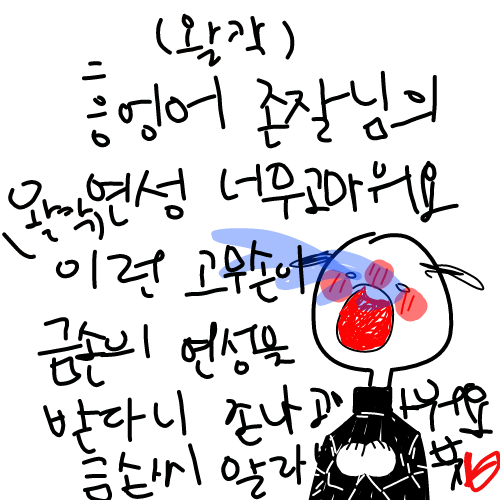 (왈칵)
흐응엉어 존잘님의
(왈칵) 연성 너무고마워요
이런 고무손이
금손의 연성을
받다니 존나 고마워요
금손씨 알라